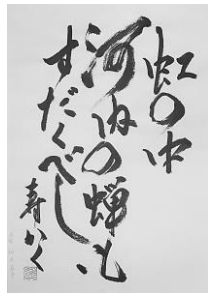 虹の中
河内の蝉も
すだくべし
寿